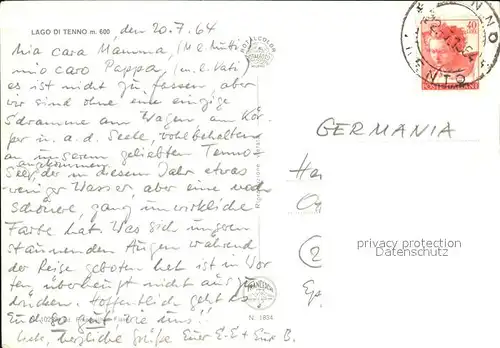 LAGO DI TENNO m. 600
den 20.7.64
Mia cara Mamma, (M.l. Mutti)
mio caro Pappa, (m.l. Vati)
es ist nicht zu fassen, aber
wir sind ohne eine einzige
Schramme am Wagen, am Kör-
per u. a. d. Seele, wohlbehalten
an unserem geliebten Tenno-
angekommen
See, der in diesem Jahr etwas
weniger Wasser, aber eine noch
schönere, ganz unwirkliche
Farbe hat. Was sich unseren
staunenden Augen während
der Reise geboten hat ist in Wor-
ten überhaupt nicht aus zu
drücken. Hoffentlich geht es
Euch so gut, wie uns!!
herzliche Grüße Eure E.E + Eure B.
KODAK
N. 1934
40
POSTE ITALIANE
TENNO
GERMANIA
privacy protection
Datenschutz